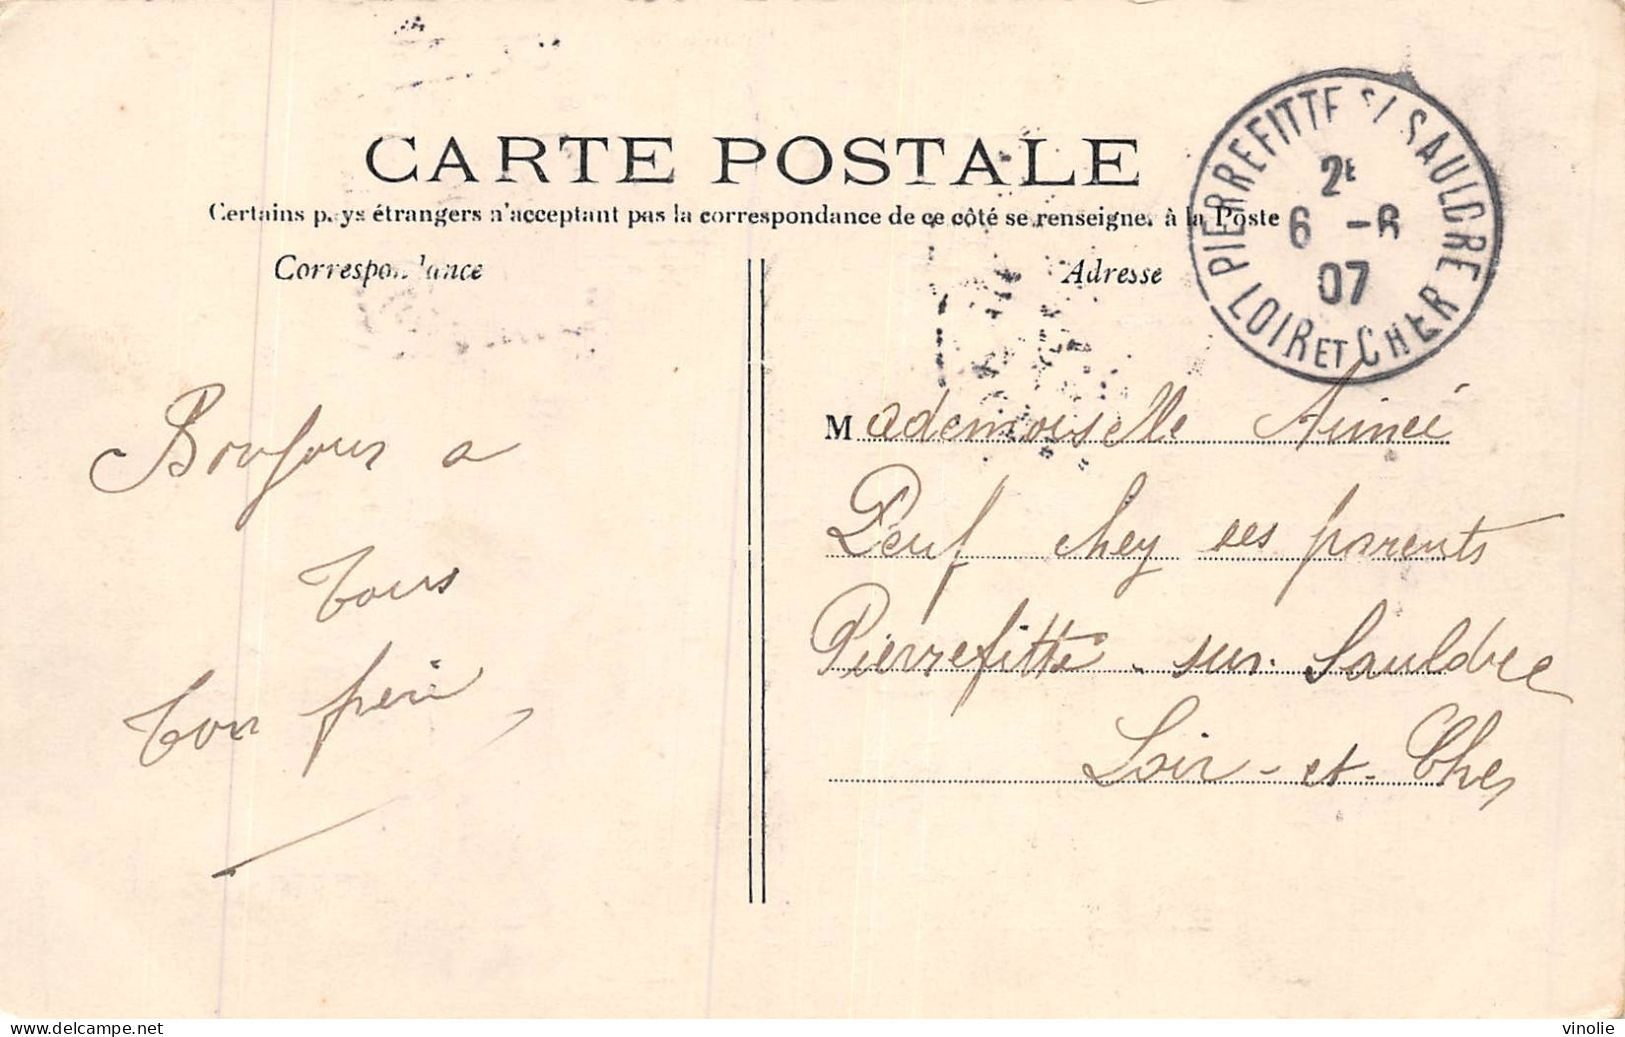 CARTE POSTALE
Certains pays étrangers n'acceptant pas la correspondance de ce côté se renseigner à la Poste
Correspondance
Adresse
PIERREFITTE S/ SAULDRE
2E
6 -6
07
LOIR ET CHER
Bonjour a
tous
ton frère
Mademoiselle Aimée
Deuf chez ses parents
Pierrefitte-sur-Sauldre
Loir-et-Cher
delcampe.net
vinolie